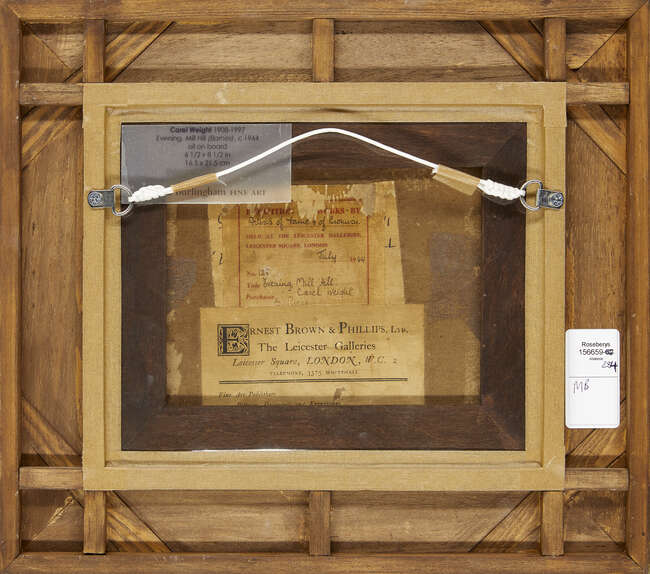 Carel Weight 1908-1997
Evening, Mill Hill (Barnes), c.1944
oil on board
6 1/2 x 8 1/2 in
16.5 x 21.5 cm
Burlingham FINE ART
BY
of Fame & of Promise
HELD AT THE LEICESTER GALLERIES,
LEICESTER SQUARE, LONDON
July 1944
No.
Title Evening Mill Hill
Carel Weight
Purchaser
ERNEST BROWN & PHILLIPS, LTD.
The Leicester Galleries
Leicester Square, LONDON, W.C. 2
TELEPHONE, 3375 WHITEHALL
Fine Art Publishers
Roseberys
156659-
684
MB